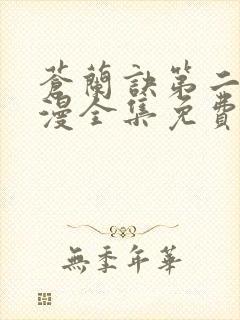 蒼蘭訣第二
漫全集免費
無季年華